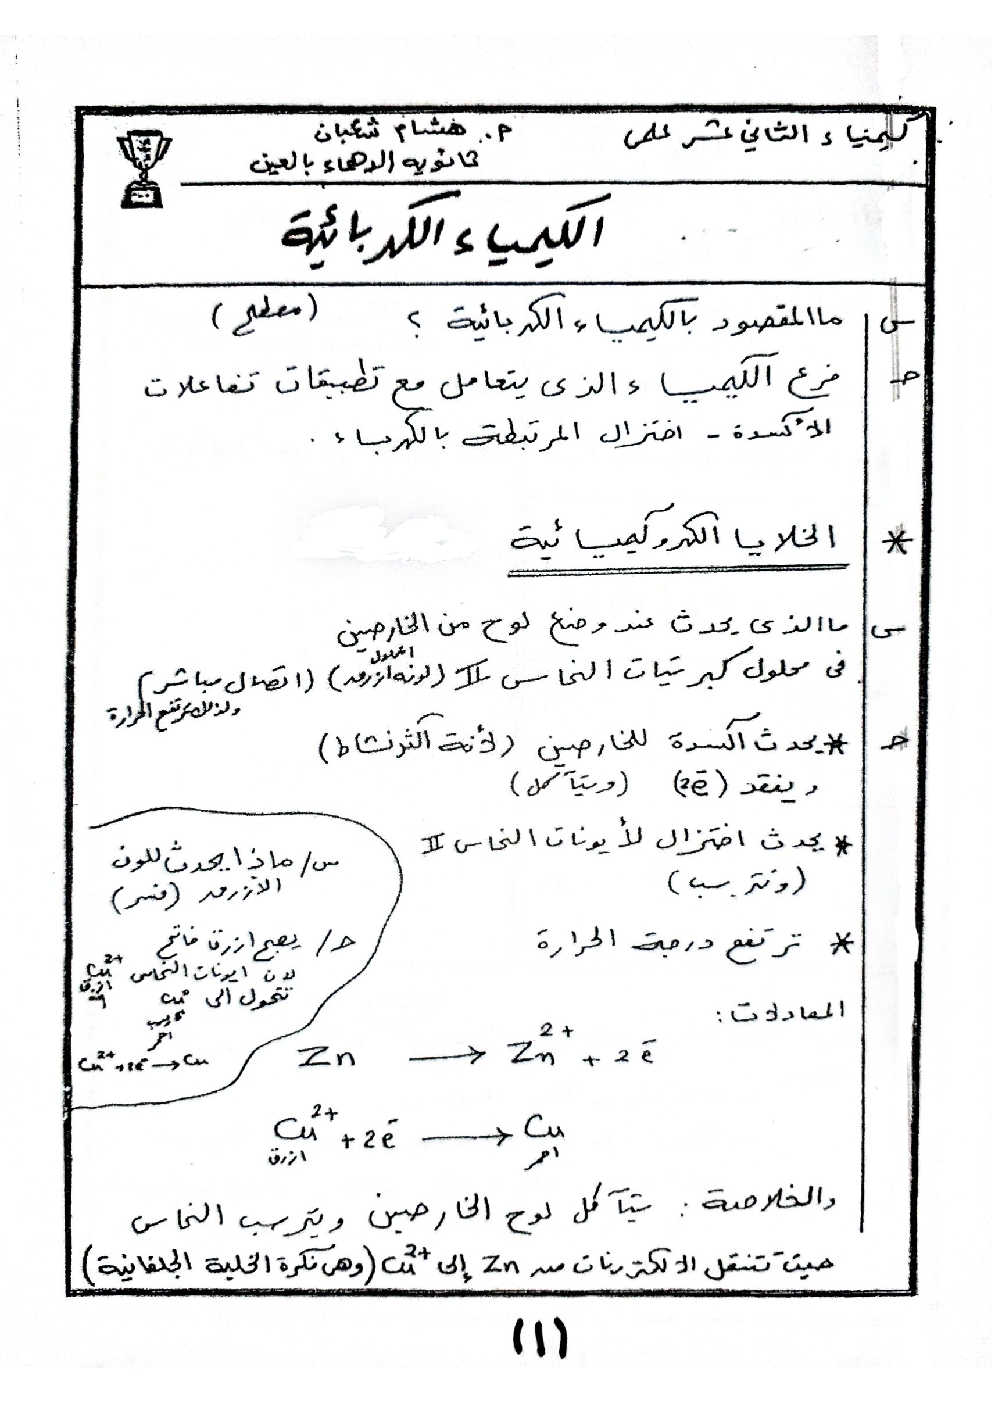 كيمياء الثاني عشر علمى
م. هشام شعبان
ثانوية الدهماء بالعين
الكيمياء الكهربائية
س ما المقصود بالكيمياء الكهربائية ؟ (مصطلح)
جـ فرع الكيمياء الذى يتعامل مع تطبيقات تفاعلات
الأكسدة - اختزال المرتبطة بالكهرباء .
* الخلايا الكهروكيميائية
س ما الذى يحدث عند وضع لوح من الخارصين
فى محلول كبريتات النحاس II (لونه ازرق) (اتصال مباشر)
المحلول
ولذلك ترتفع الحرارة
جـ * يحدث أكسدة للخارصين (لأنة أكثر نشاط)
ويفقد (2e-) (ويتآكل)
* يحدث اختزال لأيونات النحاس II
(وتترسب)
* ترتفع درجة الحرارة
س/ ماذا يحدث للون
الأزرق (فسر)
جـ/ يصبح ازرق فاتح
لان ايونات النحاس Cu2+
ازرق
تتحول الى Cu°
احمر
Cu2+ + 2e- → Cu
المعادلات :
Zn → Zn2+ + 2e-
Cu2+ + 2e- → Cu
ازرق احمر
والخلاصة : يتآكل لوح الخارصين ويترسب النحاس
حيث تنتقل الالكترونات من Zn إلى Cu2+ (وهى فكرة الخلية الجلفانية)
(١)